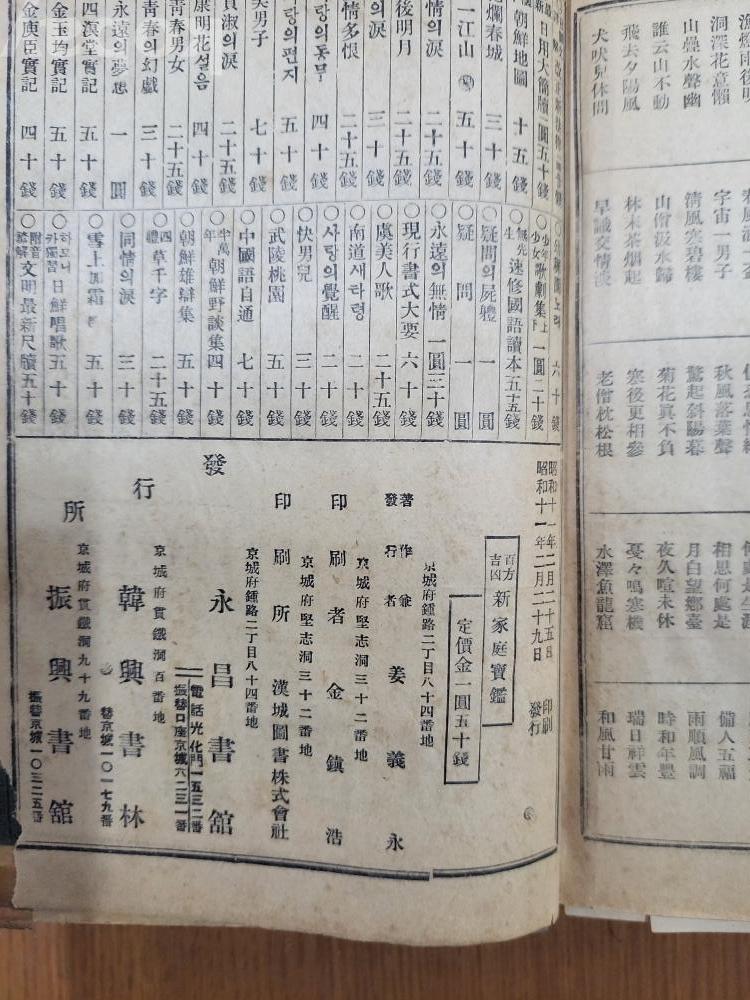 洞深花意懶
山疊水聲幽
誰云山不動
飛去夕陽風
犬吠兒休問
宇宙一男子
清風寒碧樓
山僧汲水歸
林末茶烟起
早識交情淡
秋風落葉聲
驚起斜陽暮
菊花眞不負
寒後更相參
老僧枕松根
相思何處是
月白望鄕臺
夜久喧未休
戛々鳴寒機
水深魚龍窟
備人五福
雨順風調
時和年豐
瑞日祥雲
和風甘雨
日用大簡牘 一圓五十錢
朝鮮地圖 十五錢
爛春城 三十錢
一江山 五十錢
情의淚 二十五錢
後明月 二十五錢
의淚 三十錢
情多恨 二十五錢
랑의동무 四十錢
랑의편지 五十錢
美男子 七十錢
貞淑의淚 二十五錢
康明花설음 四十錢
靑春男女 二十五錢
靑春의幻戱 三十錢
永遠의夢想 一圓
四溟堂實記 五十錢
金玉均實記 五十錢
金庚臣實記 四十錢
○少年少女歌劇集上下 一圓二十錢
○無先生速修國語讀本 五十五錢
○疑問의屍體 一圓
○疑問 一圓
○永遠의無情 一圓三十錢
○現行書式大要 六十錢
○虞美人歌 二十五錢
○南道새타령 二十錢
○사랑의覺醒 二十錢
○快男兒 三十錢
○武陵桃園 五十錢
○中國語自通 七十錢
○半萬年朝鮮野談集 四十錢
○朝鮮雄辯集 五十錢
○四禮草千字 二十五錢
○同情의淚 三十錢
○雪上加霜 五十錢
○하모니카獨習日鮮唱歌 五十錢
○附音註解文明最新尺牘 五十錢
昭和十一年二月二十五日 印刷
昭和十一年二月二十九日 發行
百方吉凶 新家庭寶鑑
定價金一圓五十錢
京城府鍾路二丁目八十四番地
著作兼發行者 姜義永
京城府堅志洞三十二番地
印刷者 金鎭浩
京城府堅志洞三十二番地
印刷所 漢城圖書株式會社
京城府鍾路二丁目八十四番地
發行所
永昌書舘
電話光化門一五三二番
振替口座京城六二三一番
京城府貫鐵洞百番地
韓興書林
振替京城一〇一七九番
京城府貫鐵洞九十九番地
振興書舘
振替京城一〇三二五番